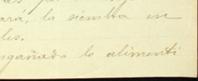 ara, la siembra en
les.
engañada lo alimenti